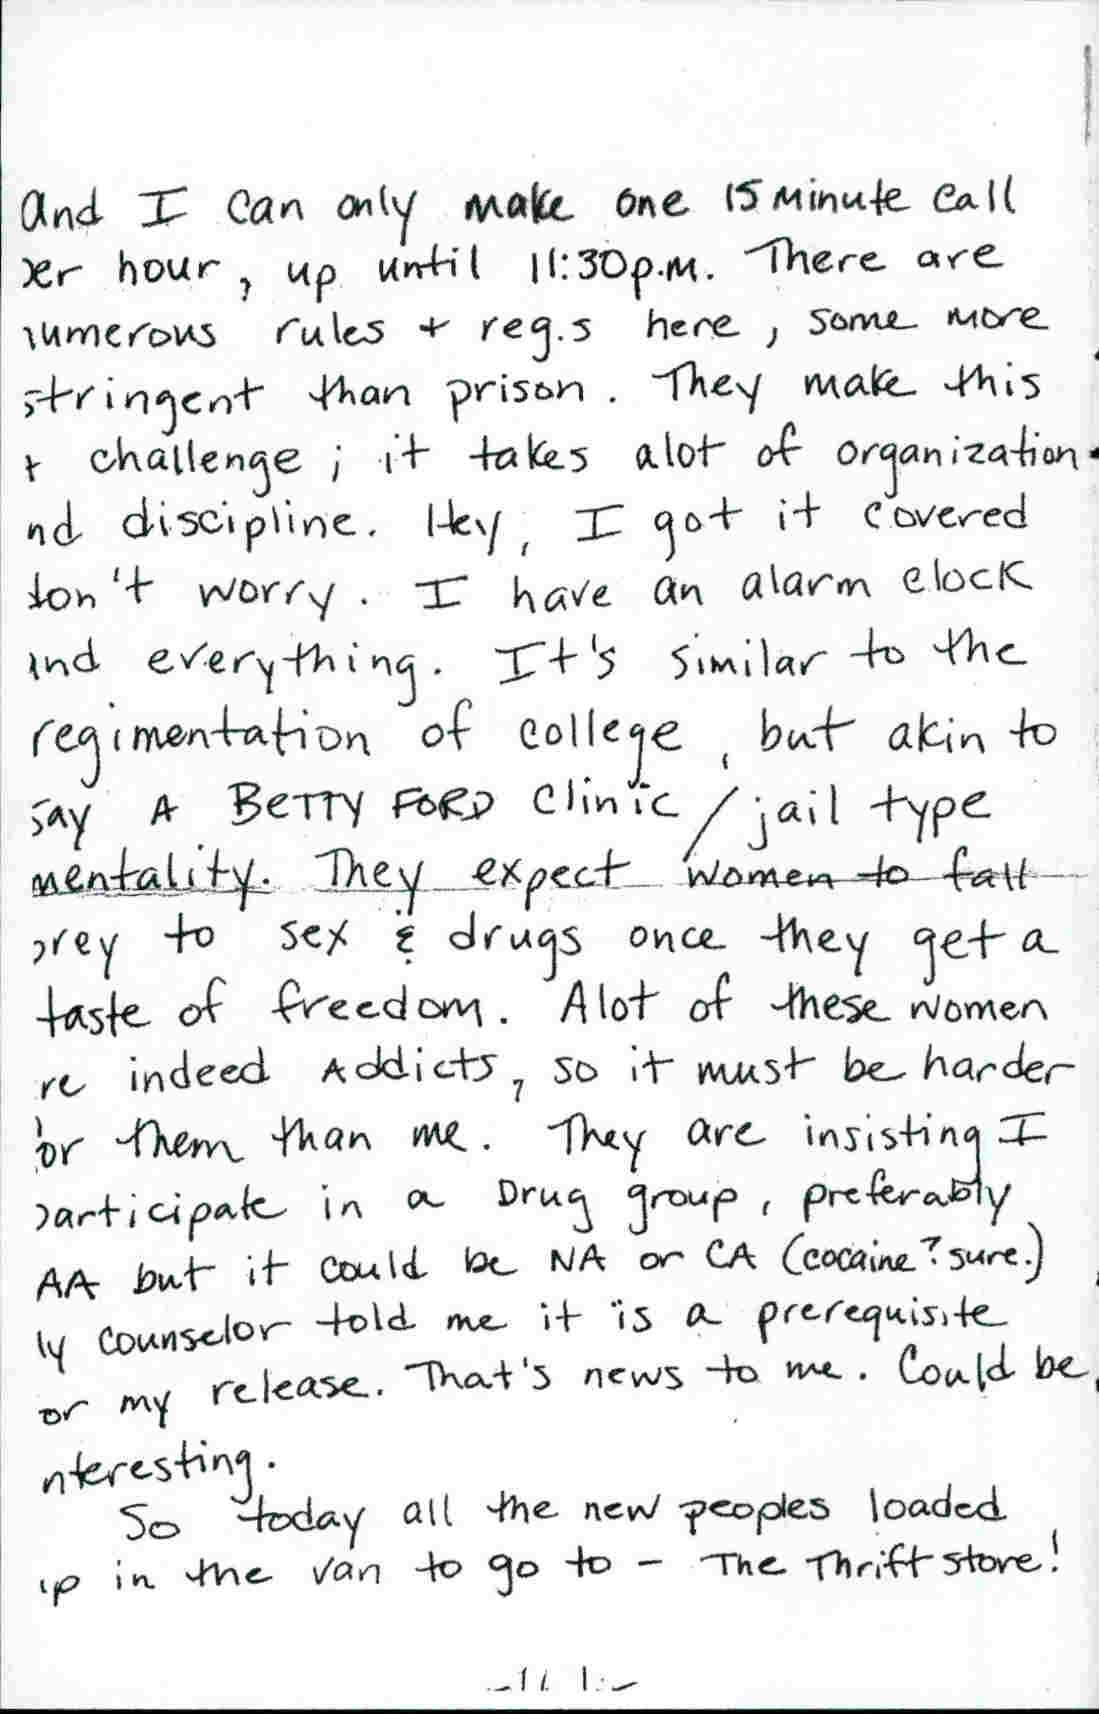 and I can only make one 15 minute call
er hour, up until 11:30p.m. There are
numerous rules + reg.s here, some more
stringent than prison. They make this
challenge; it takes alot of organization
nd discipline. Hey, I got it covered
don't worry. I have an alarm clock
and everything. It's similar to the
regimentation of college, but akin to
say A BETTY FORD clinic/jail type
mentality. They expect women to fall
prey to sex & drugs once they get a
taste of freedom. Alot of these women
re indeed Addicts, so it must be harder
for them than me. They are insisting I
participate in a Drug group, preferably
AA but it could be NA or CA (cocaine? sure.)
My counselor told me it is a prerequisite
or my release. That's news to me. Could be
nteresting.
So today all the new peoples loaded
up in the van to go to - The Thrift store!